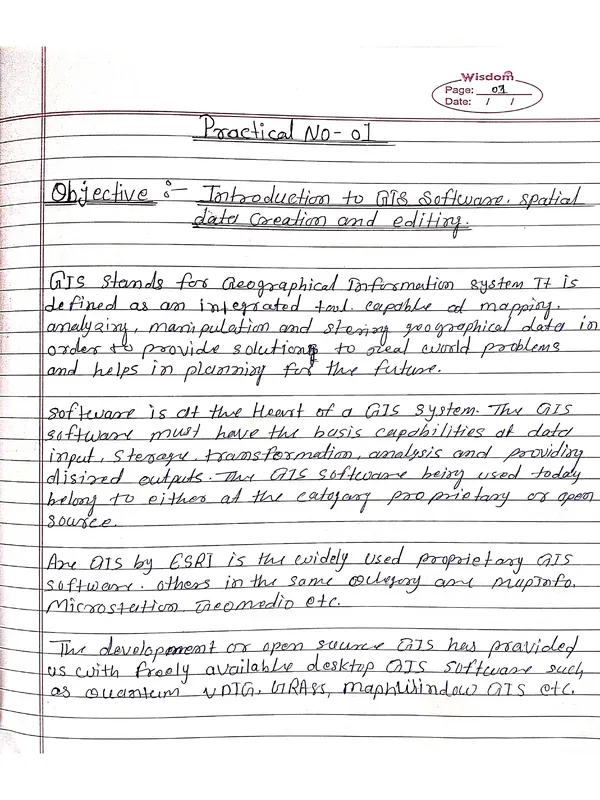 Wisdom
Page: 01
Date: / /
Practical No - 01
Objective :- Introduction to GIS Software. spatial
data creation and editing.
GIS stands for Geographical Information system It is
defined as an integrated tool. capable od mapping.
analyzing, manipulation and storing geographical data in
order to provide solutions to real world problems
and helps in planning for the future.
software is at the Heart of a GIS system. The GIS
software must have the basis capabilities of data
input, storage, transformation, analysis and providing
disired outputs. The GIS software being used today
belong to either at the category proprietary or open
source.
Arc GIS by ESRI is the widely used proprietary GIS
software. others in the same category are mapInfo.
Microstation Geomedio etc.
The development or open source GIS has provided
us with freely available desktop GIS software such
as Quantum GRASS, GIS etc.